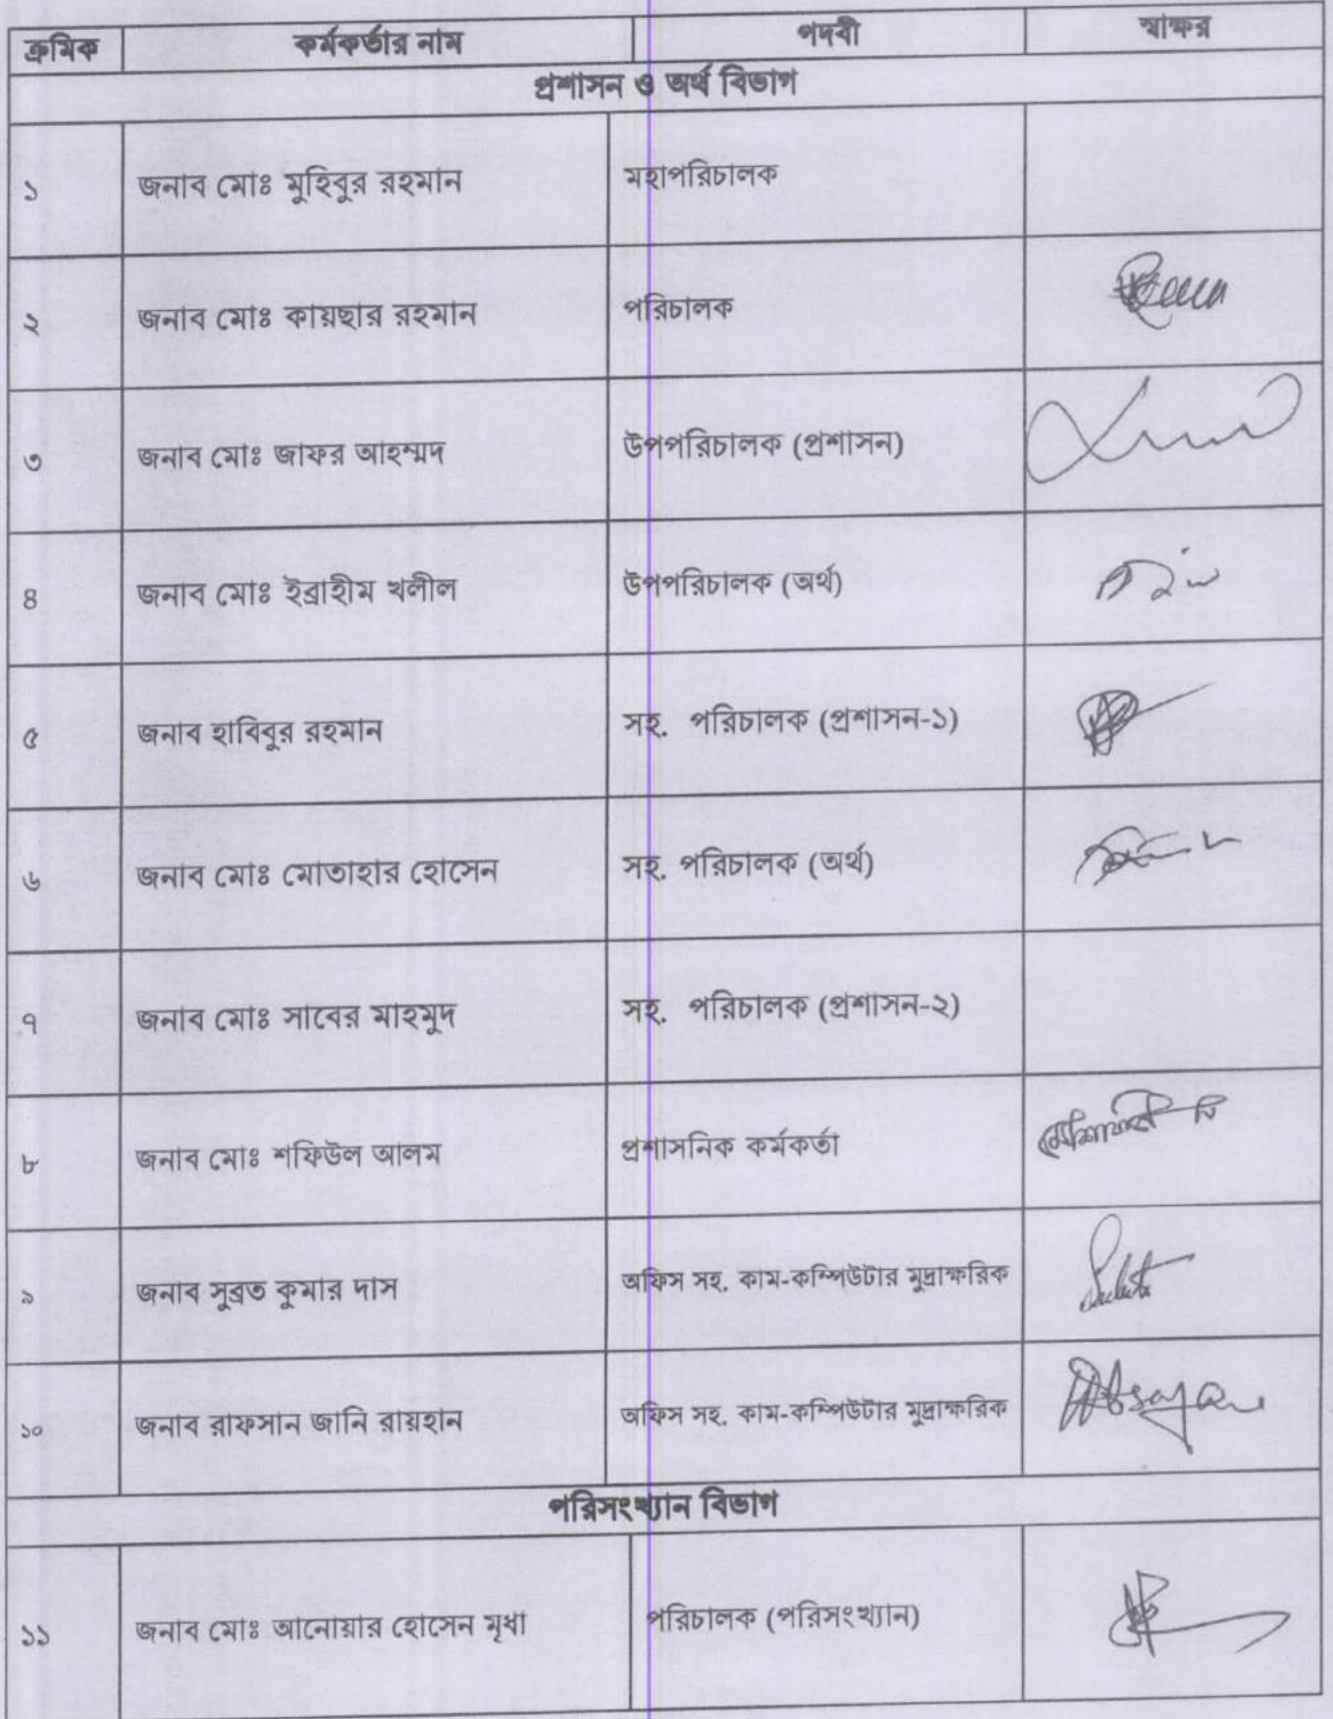 ক্রমিক কর্মকর্তার নাম পদবী স্বাক্ষর
প্রশাসন ও অর্থ বিভাগ
১ জনাব মোঃ মুহিবুর রহমান মহাপরিচালক
২ জনাব মোঃ কায়ছার রহমান পরিচালক
৩ জনাব মোঃ জাফর আহম্মদ উপপরিচালক (প্রশাসন)
৪ জনাব মোঃ ইব্রাহীম খলীল উপপরিচালক (অর্থ)
৫ জনাব হাবিবুর রহমান সহ. পরিচালক (প্রশাসন-১)
৬ জনাব মোঃ মোতাহার হোসেন সহ. পরিচালক (অর্থ)
৭ জনাব মোঃ সাবের মাহমুদ সহ. পরিচালক (প্রশাসন-২)
৮ জনাব মোঃ শফিউল আলম প্রশাসনিক কর্মকর্তা
৯ জনাব সুব্রত কুমার দাস অফিস সহ. কাম-কম্পিউটার মুদ্রাক্ষরিক
১০ জনাব রাফসান জানি রায়হান অফিস সহ. কাম-কম্পিউটার মুদ্রাক্ষরিক
পরিসংখ্যান বিভাগ
১১ জনাব মোঃ আনোয়ার হোসেন মৃধা পরিচালক (পরিসংখ্যান)